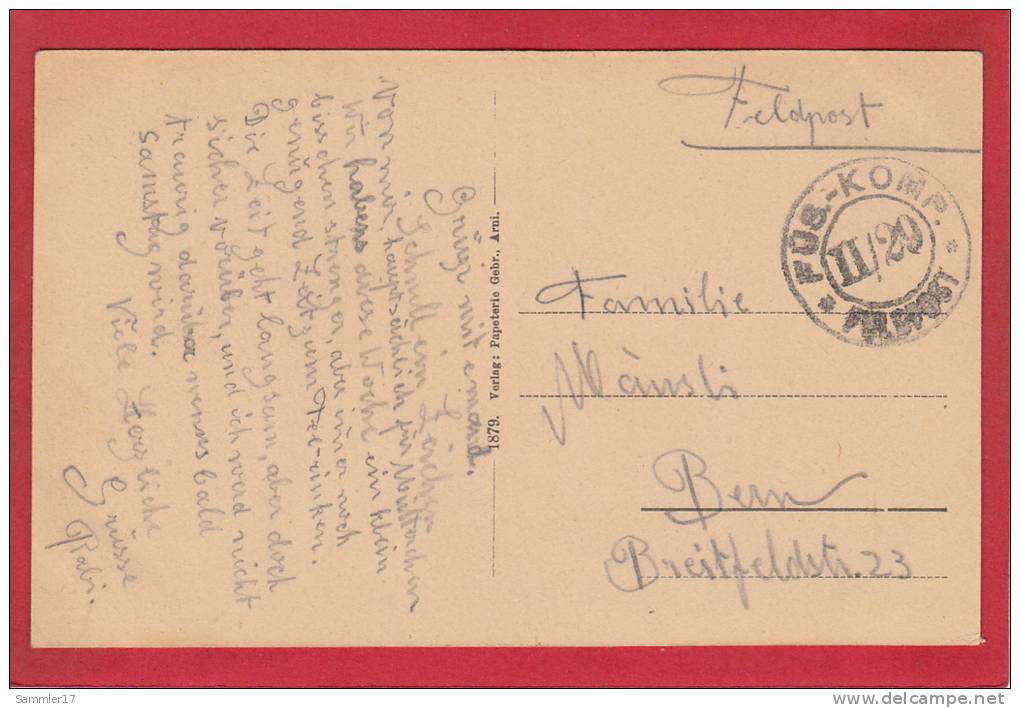 Feldpost
FÜS.-KOMP.
II/20
* FELDPOST *
Familie
Mäusli
Bern
Breitfeldstr. 23
1879. Verlag: Papeterie Gebr., Arni.
Grüezi mit einand.
Schnell ein Zeichen
von mir, hauptsächlich für Mütterchen
Wir habens diese Woche ein klein
bisschen strenger, aber immer noch
genügend Zeit zum Tee-trinken.
Die Zeit geht langsam, aber doch
sicher vorüber, und ich werd nicht
traurig darüber wenns bald
Samstag wird.
Viele herzliche
Grüsse
Rabi.
Sammler17
www.delcampe.net